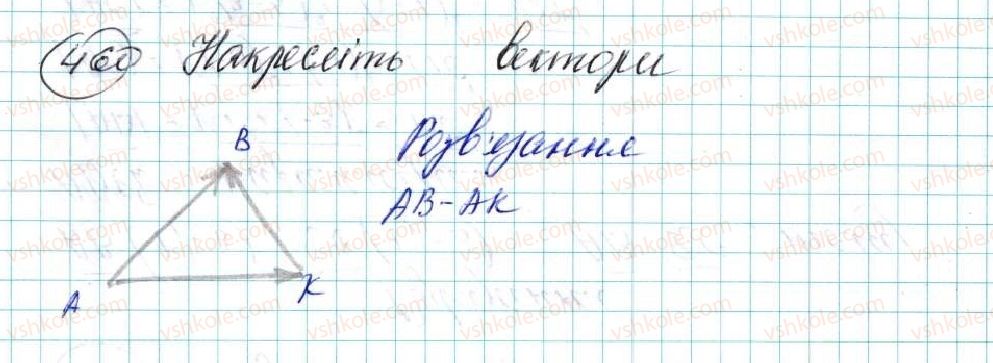 460 Накресліть вектори
B
Розв'язання
AB-AK
A
K
vshkole.com